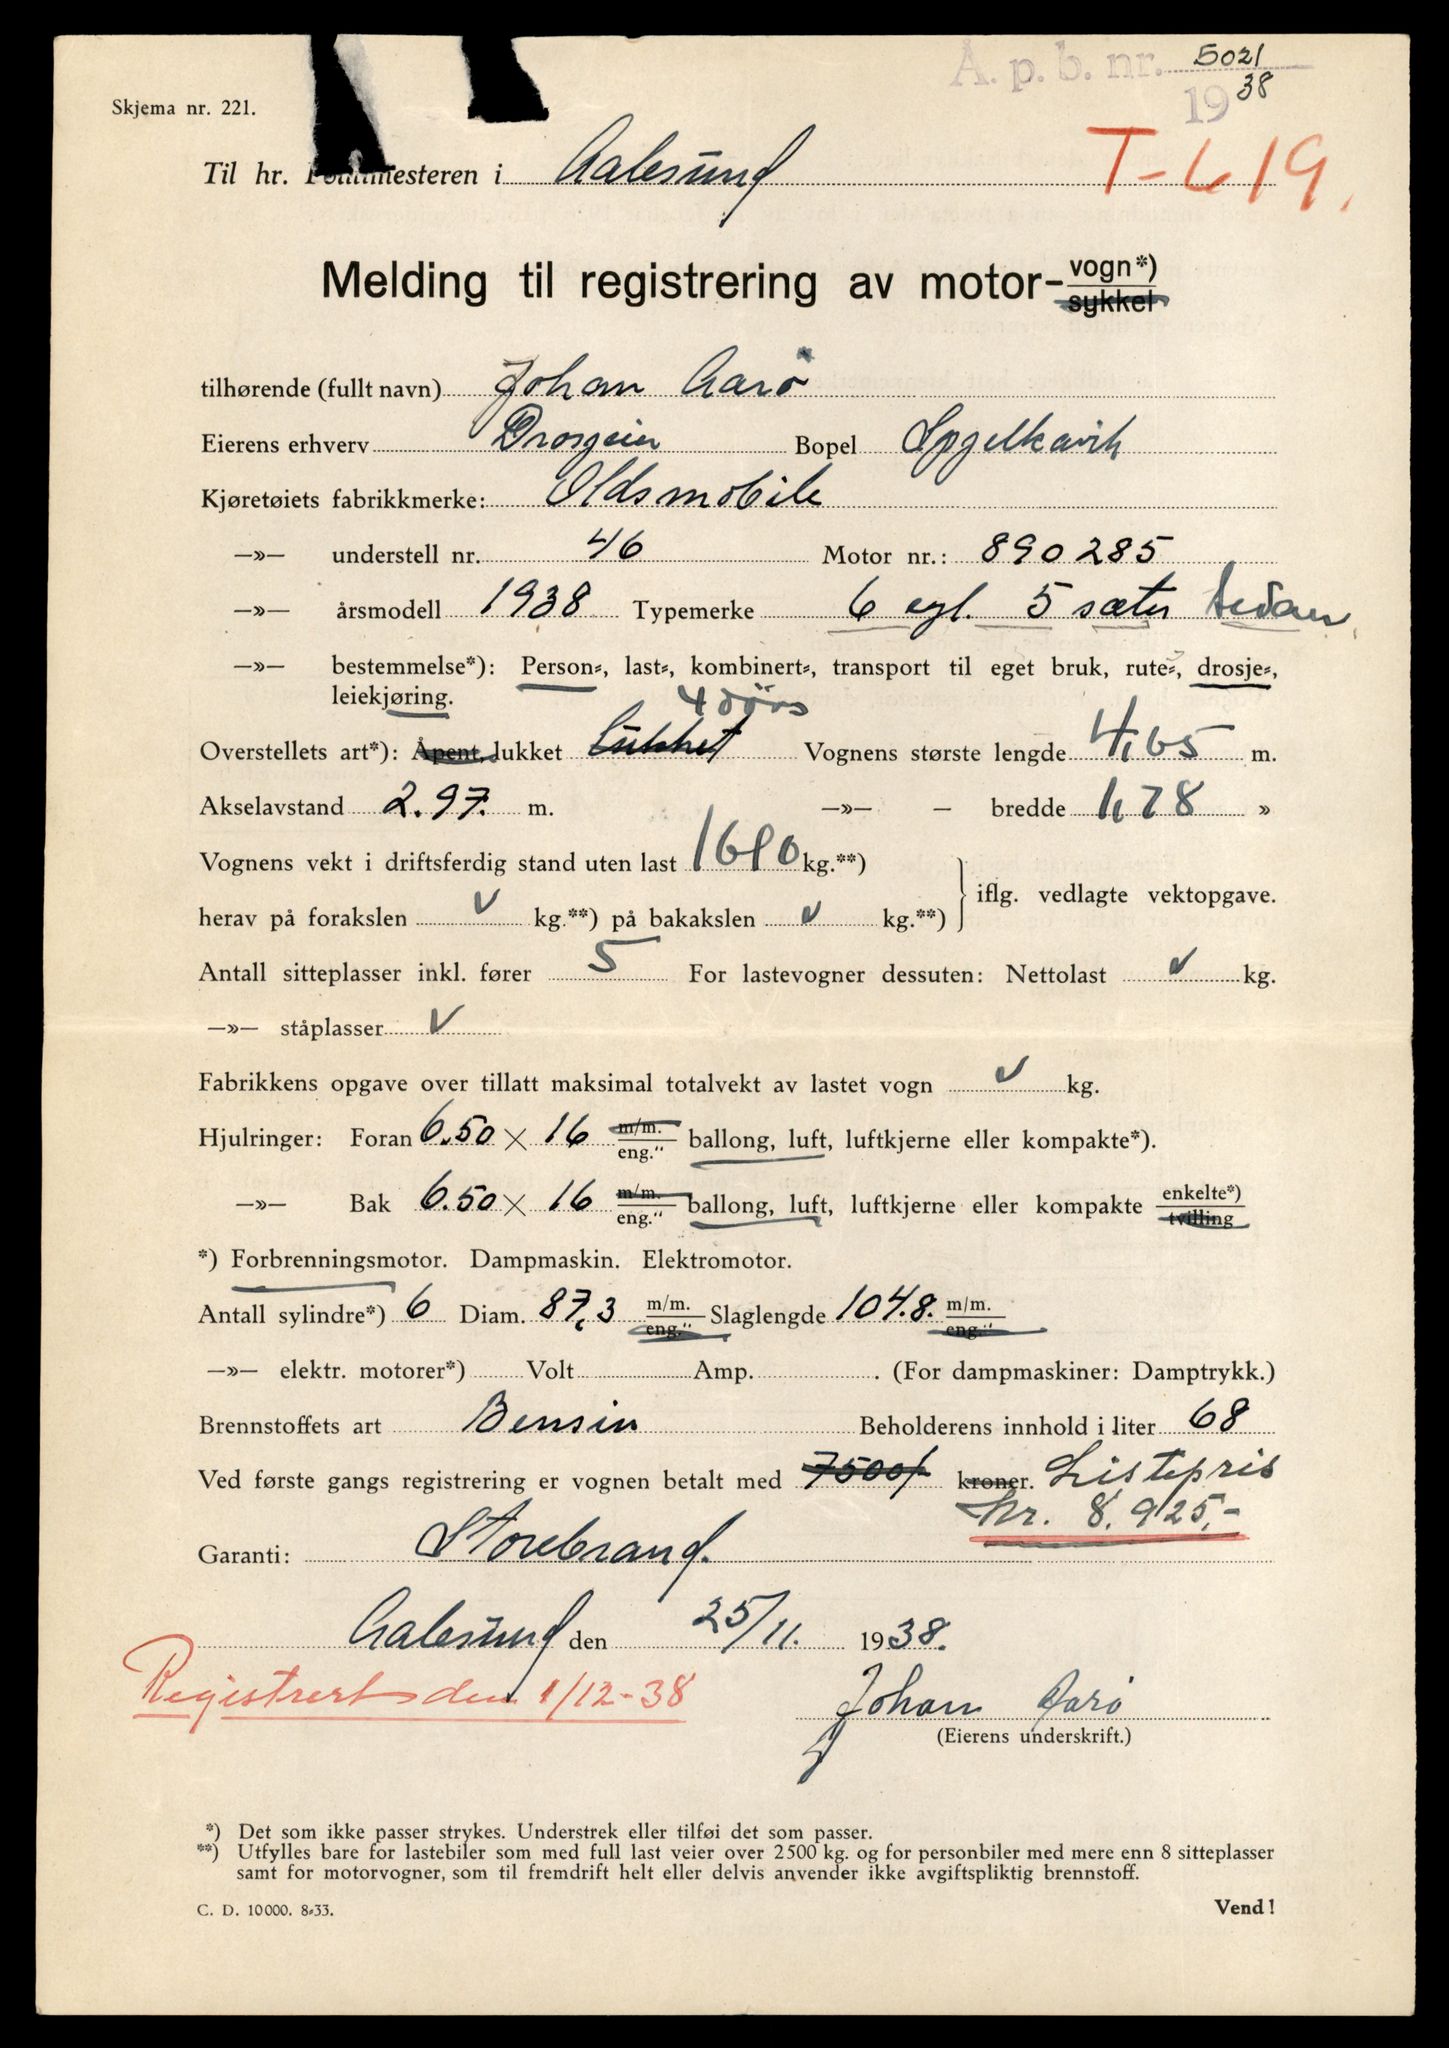 Å. p. b. nr. 5021
1938
Skjema nr. 221.
Til hr. Politimesteren i Aalesund
T-619.
Melding til registrering av motor- vogn*)
sykkel
tilhørende (fullt navn) Johan Aarö
Eierens erhverv Drosjeeier Bopel Spjelkavik
Kjøretøiets fabrikkmerke: Oldsmobile
—»— understell nr. 46 Motor nr.: 890285
—»— årsmodell 1938 Typemerke 6 cyl. 5 sæter Sedan
—»— bestemmelse*): Person-, last-, kombinert-, transport til eget bruk, rute-, drosje-,
leiekjøring. 4 dörs
Overstellets art*): Åpent, lukket Lukket Vognens største lengde 4,65 m.
Akselavstand 2.97. m. —»— — bredde 1,78 »
Vognens vekt i driftsferdig stand uten last 1610 kg.**)
herav på forakslen v kg.**) på bakakslen v kg.**) iflg. vedlagte vektopgave.
Antall sitteplasser inkl. fører 5 For lastevogner dessuten: Nettolast v kg.
—»— ståplasser v
Fabrikkens opgave over tillatt maksimal totalvekt av lastet vogn v kg.
Hjulringer: Foran 6.50 × 16 m/m. eng." ballong, luft, luftkjerne eller kompakte*).
—»— Bak 6.50 × 16 m/m. eng." ballong, luft, luftkjerne eller kompakte enkelte*) tvilling
*) Forbrenningsmotor. Dampmaskin. Elektromotor.
Antall sylindre*) 6 Diam. 87,3 m/m. eng." Slaglengde 104.8. m/m. eng."
—»— elektr. motorer*) Volt Amp. . (For dampmaskiner: Damptrykk.)
Brennstoffets art Bensin Beholderens innhold i liter 68
Ved første gangs registrering er vognen betalt med 7500/- kroner. Listepris
Kr. 8.925,-
Garanti: Storebrand.
Aalesund den 25/11. 1938.
Registrert den 1/12-38
Johan Aarö
(Eierens underskrift.)
*) Det som ikke passer strykes. Understrek eller tilføi det som passer.
**) Utfylles bare for lastebiler som med full last veier over 2500 kg. og for personbiler med mere enn 8 sitteplasser
samt for motorvogner, som til fremdrift helt eller delvis anvender ikke avgiftspliktig brennstoff.
C. D. 10000. 8-33.
Vend!